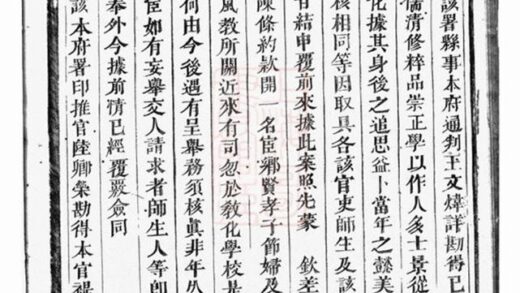 該署縣事本府通判王文煒詳勘得已
儒清修粹品崇正學以作人多士景從
化據其身後之追思益卜當年之懿美
核相同等因取具各該官吏師生及該
甘結申覆前來據此案照先蒙 欽差
陳條約款開一名宦鄉賢孝子節婦及
風教所關近來有司忽於教化學校是
何由今後遇有呈舉務須核眞非年久
宦如有妄舉交人請求者師生人等即
奉外今據前情已經覆覈僉同
該本府署印推官陸卿榮勘得本官禔